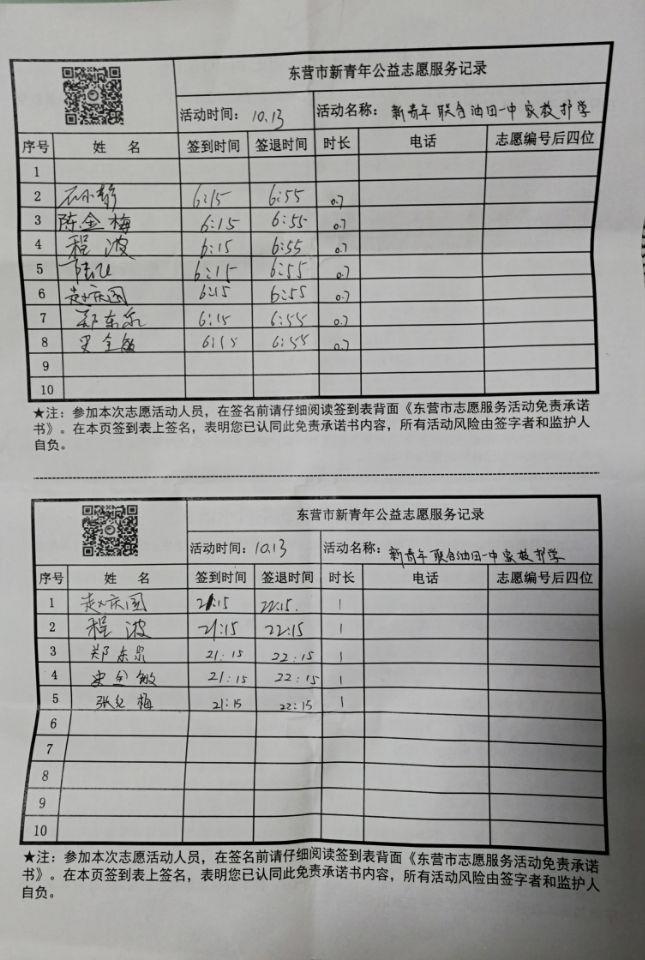 东营市新青年公益志愿服务记录
活动时间： 10.13 活动名称： 新青年联合油田一中家校护学
序号 姓 名 签到时间 签退时间 时长 电话 志愿编号后四位
1
2 石小静 6:15 6:55 0.7
3 陈金梅 6:15 6:55 0.7
4 程波 6:15 6:55 0.7
5 6:15 6:55 0.7
6 赵庆国 6:15 6:55 0.7
7 郑东泉 6:15 6:55 0.7
8 史全敏 6:15 6:55 0.7
9
10
★注：参加本次志愿活动人员，在签名前请仔细阅读签到表背面《东营市志愿服务活动免责承诺
书》。在本页签到表上签名，表明您已认同此免责承诺书内容，所有活动风险由签字者和监护人
自负。
东营市新青年公益志愿服务记录
活动时间： 10.13 活动名称： 新青年联合油田一中家校护学
序号 姓 名 签到时间 签退时间 时长 电话 志愿编号后四位
1 赵庆国 21:15 22:15 1
2 程波 21:15 22:15 1
3 郑东泉 21:15 22:15 1
4 史全敏 21:15 22:15 1
5 张 梅 21:15 22:15 1
6
7
8
9
10
★注：参加本次志愿活动人员，在签名前请仔细阅读签到表背面《东营市志愿服务活动免责承诺
书》。在本页签到表上签名，表明您已认同此免责承诺书内容，所有活动风险由签字者和监护人
自负。